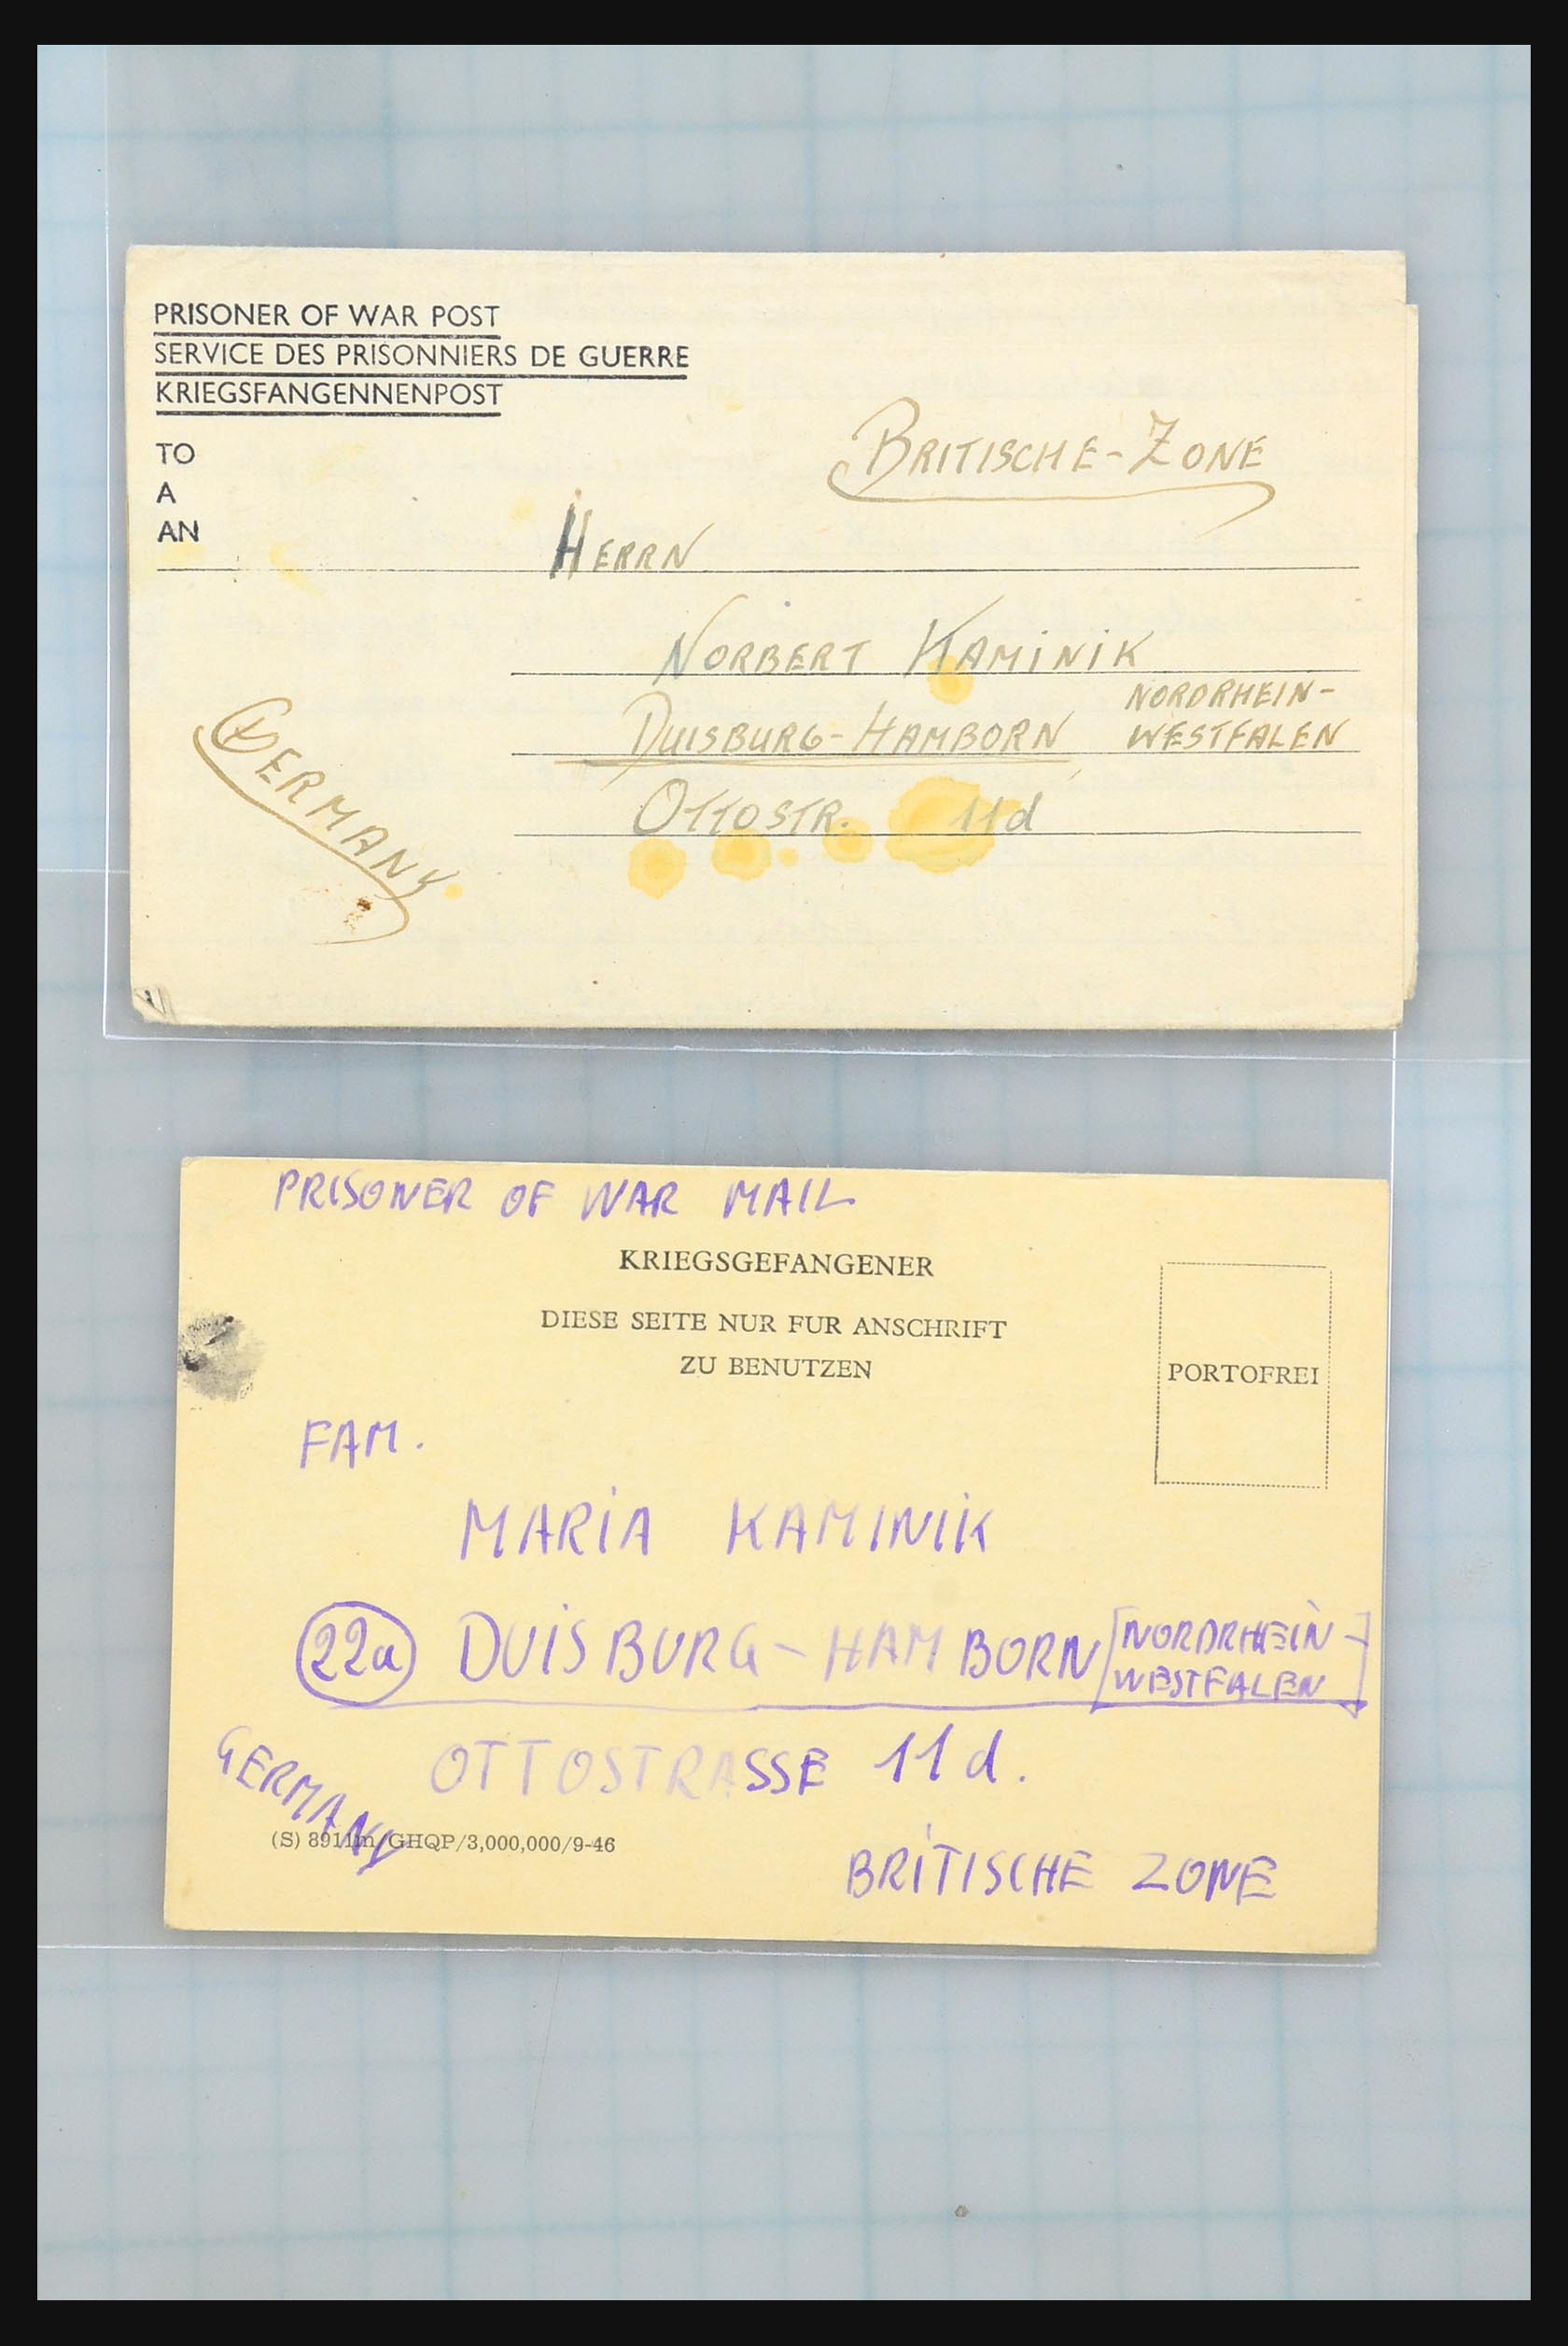 PRISONER OF WAR POST
SERVICE DES PRISONNIERS DE GUERRE
KRIEGSFANGENNENPOST
TO
A
AN
BRITISCHE-ZONE
HERRN
NORBERT KAMINIK
DUISBURG-HAMBORN NORDRHEIN-
WESTFALEN
OTTOSTR. 11d
GERMANY
PRISONER OF WAR MAIL
KRIEGSGEFANGENER
DIESE SEITE NUR FUR ANSCHRIFT
ZU BENUTZEN
PORTOFREI
FAM.
MARIA KAMINIK
22a DUISBURG-HAMBORN [NORDRHEIN-
WESTFALEN]
OTTOSTRASSE 11d.
GERMANY
(S) 8911m/GHQP/3,000,000/9-46
BRITISCHE ZONE